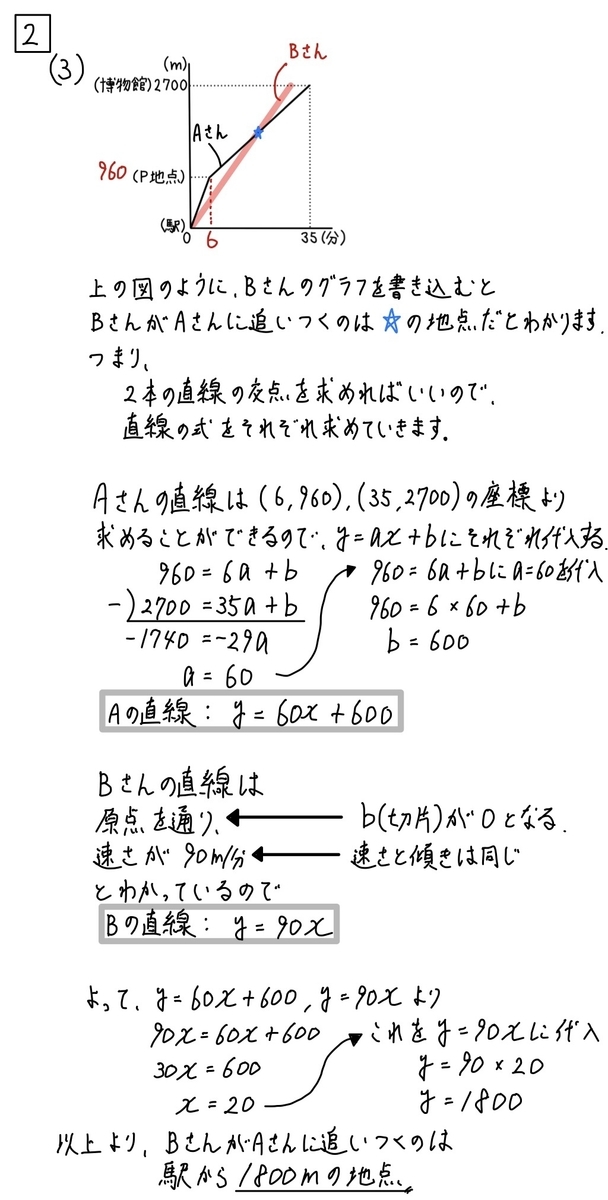 2
(3)
Bさん
(m)
(博物館)2700
Aさん
960 (P地点)
(駅)
0 6 35(分)
上の図のように、Bさんのグラフを書き込むと
BさんがAさんに追いつくのは☆の地点だとわかります.
つまり、
2本の直線の交点を求めればいいので、
直線の式をそれぞれ求めていきます。
Aさんの直線は(6,960),(35,2700)の座標より
求めることができるので、y=ax+bにそれぞれ代入する.
960=6a+b
960=6a+bにa=60を代入
-)2700=35a+b
960=6×60+b
-1740=-29a
b=600
a=60
Aの直線: y=60x+600
Bさんの直線は
原点を通り、 ← b(切片)が0となる.
速さが90m/分 ← 速さと傾きは同じ
とわかっているので
Bの直線: y=90x
よって、y=60x+600, y=90xより
90x=60x+600
これをy=90xに代入
30x=600
y=90×20
x=20
y=1800
以上より、BさんがAさんに追いつくのは
駅から1800mの地点